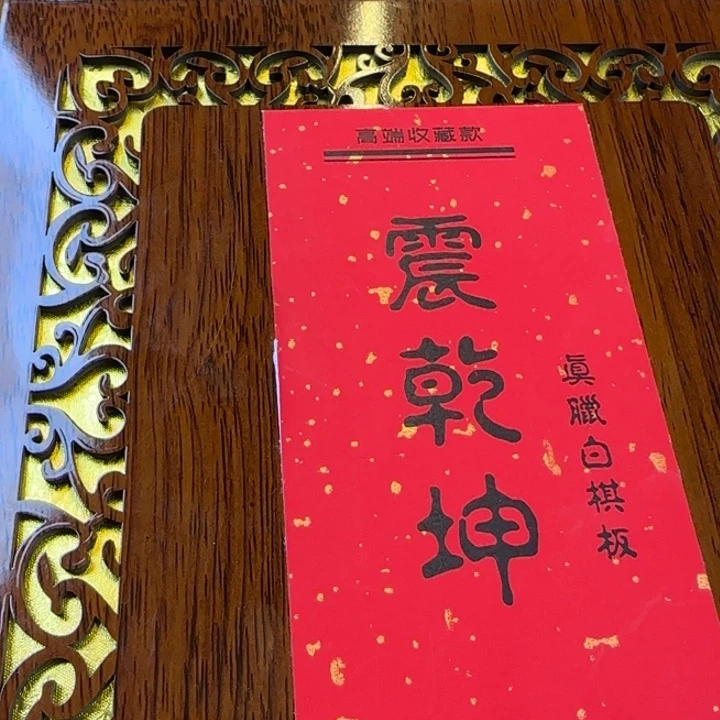 高端收藏款
震乾坤
真臘白棋板